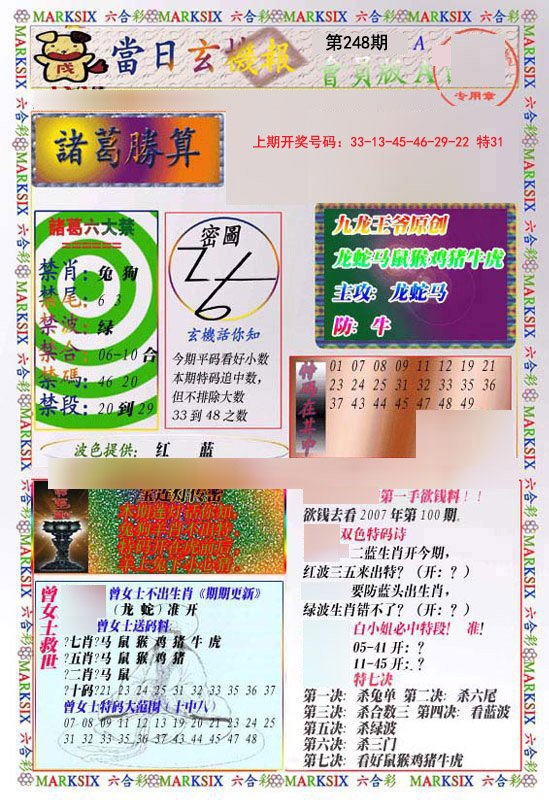 MARKSIX 六合彩 MARKSIX 六合彩 MARKSIX 六合彩 MARKSIX 六合彩
當日玄機報
第248期
A
會員版A
专用章
諸葛勝算
上期开奖号码：33-13-45-46-29-22 特31
諸葛六大禁
禁肖：兔 狗
禁尾：6 3
禁波：绿
禁合：06-10合
禁碼：46 20
禁段：20到29
密圖
玄機話你知
今期平码看好小数
本期特码追中数，
但不排除大数
33到48之数
九龙王爷原创
龙蛇马鼠猴鸡猪牛虎
主攻：龙蛇马
防：牛
特码在其中
01 07 08 09 11 12 19 21
23 24 25 31 32 33 35 36
37 43 44 45 47 48 49
波色提供： 红 蓝
曾女士救世
曾女士不出生肖《期期更新》
（龙 蛇）准开
曾女士送码料：
?七肖?马 鼠 猴 鸡 猪 牛 虎
?五肖?马 鼠 猴 鸡 猪
?二肖?马 鼠
?十码?21 23 24 25 31 32 33 35 36 37
曾女士特码大范围（十中八）
07 08 09 11 12 13 19 20 21 23 24 25
31 32 33 35 36 37 43 44 45 47 48
第一手欲钱料！！
欲钱去看2007年第100期.
双色特码诗
二蓝生肖开今期，
红波三五来出特？（开：？）
要防蓝头出生肖，
绿波生肖错不了？（开：？）
白小姐必中特段！ 准！
05-41 开：？
11-45 开：？
特七决
第一决：杀兔单 第二决：杀六尾
第三决：杀合数三 第四决：看蓝波
第五决：杀绿波
第六决：杀三门
第七决：看好鼠猴鸡猪牛虎
MARKSIX 六合彩 MARKSIX 六合彩 MARKSIX 六合彩 MARKSIX 六合彩